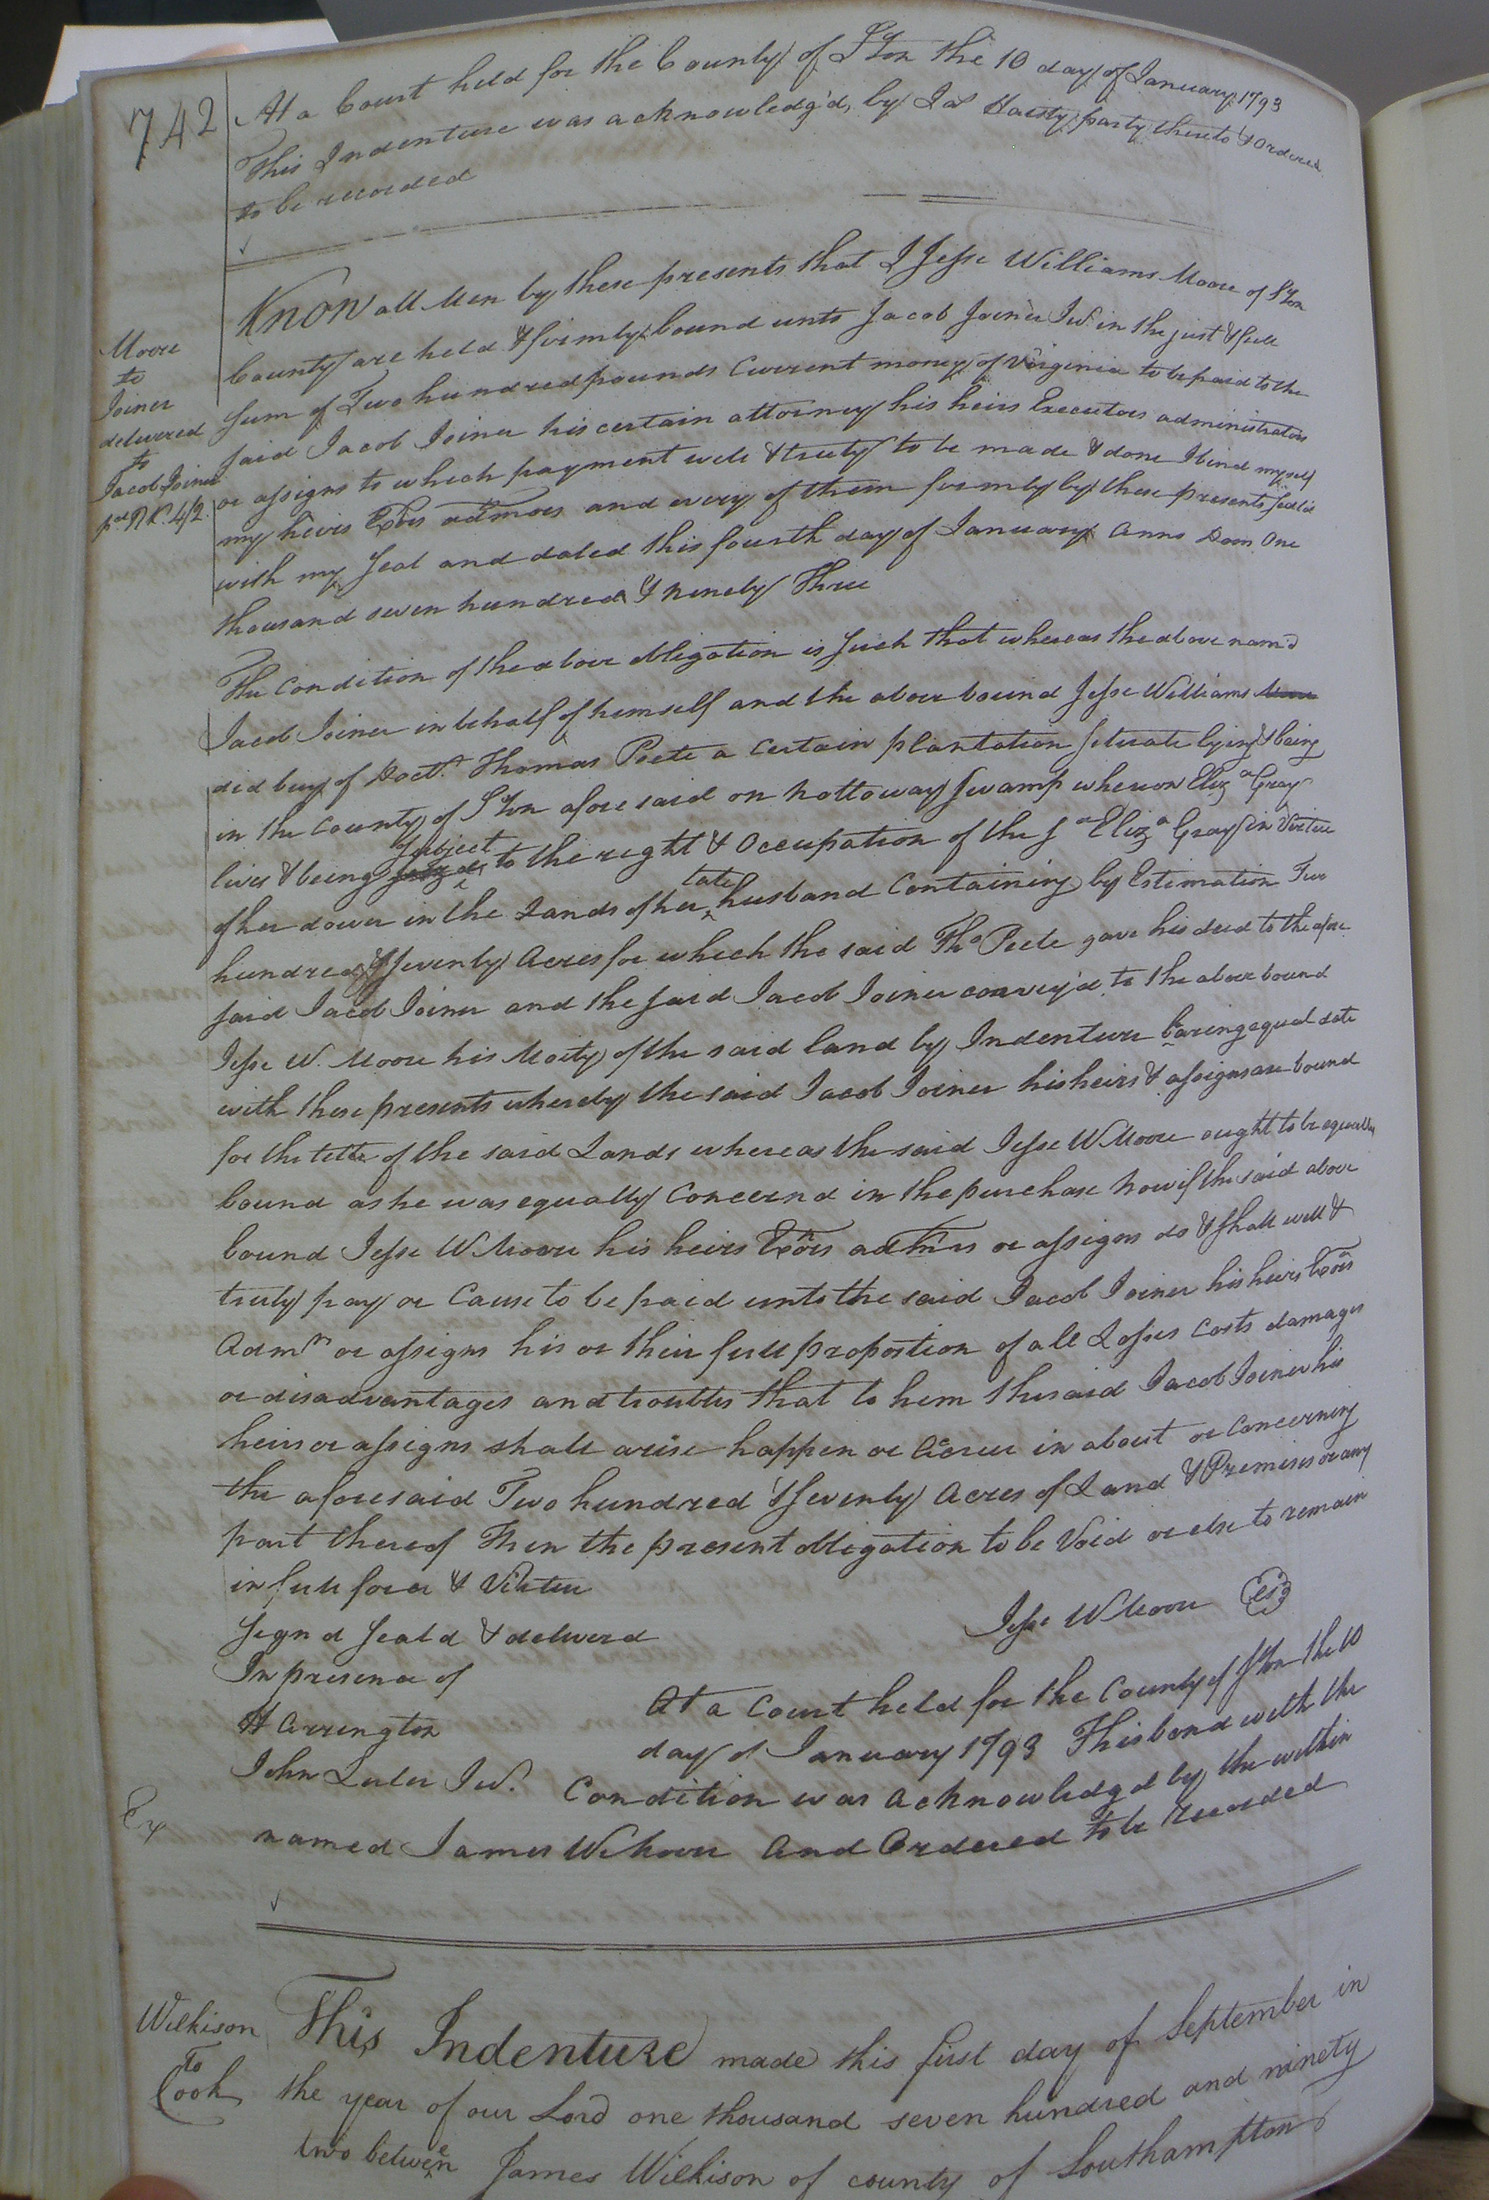 742
At a Court held for the County of S:ton the 10 day of January 1793
This Indenture was acknowledg'd, by Ja.s Harty party thereto & Ordered
to be recorded
Moore
to
Joiner
delivered
to
Jacob Joiner
Know all Men by these presents that I Jesse Williams Moore of S:ton
County are held & firmly bound unto Jacob Joiner Jur in the just & full
Sum of Two hundred pounds Current money of Virginia to be paid to the
said Jacob Joiner his certain attorney his heirs Executors administrators
or assigns to which payment well & truly to be made & done I bind myself
my heirs Exōrs admōrs and every of them firmly by these presents Seal'd
with my Seal and dated this fourth day of January Anno Dom. One
thousand seven hundred & Ninety Three
The Condition of the above obligation is Such that whereas the above nam'd
Jacob Joiner in behalf of himself and the above bound Jesse Williams Moore
did buy of Doct.r Thomas Peete a Certain plantation Situate lying & being
in the County of S:ton aforesaid on Nottoway Swamp whereon Eliz.a Gray
lives & being subject to the right & Occupation of the s.d Eliz.a Gray in Virtue
of her dower in the Lands of her late husband Containing by Estimation Two
hundred & Seventy Acres for which the said Tho.s Peete gave his deed to the afore
said Jacob Joiner and the said Jacob Joiner convey'd to the above bound
Jesse W. Moore his Moity of the said land by Indenture bearing equal date
with these presents whereby the said Jacob Joiner his heirs & assigns are bound
for the title of the said Lands whereas the said Jesse W Moore ought to be equally
bound as he was equally Concernd in the purchase Now if the said above
bound Jesse W Moore his heirs Exōrs admrs or assigns do & shall well &
truly pay or Cause to be paid unto the said Jacob Joiner his heirs Exōrs
Admrs or assigns his or their full proportion of all Losses Costs damages
or disadvantages and troubles that to him the said Jacob Joiner his
heirs or assigns shall arise happen or Accrue in about or Concerning
the aforesaid Two hundred & Seventy Acres of Land & Premises or any
part thereof Then the present obligation to be Void or else to remain
in full force & Virtue
Signd Seald & deliverd
In presence of
Jesse W Moore
H Arrington
John Luter Jur.
At a Court held for the County of S:ton the 10
day of January 1793 This bond with the
Condition was Acknowledgd by the within
Ex
named James W Moore And Ordered to be Recorded
Wilkison
To
Cook
This Indenture made this first day of September in
the year of our Lord one thousand seven hundred and ninety
two between James Wilkison of county of Southampton